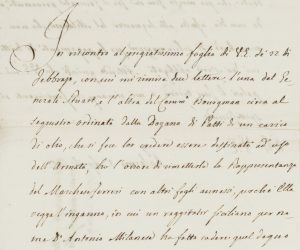 In riscontro al pregiatissimo foglio di V.E. de' 22 di
Febbrajo, con cui mi rimise due lettere l'una del Ge-
nerale Stuart, e l'altra del circa al
sequestro ordinato dalla Dogana di Patti di un carico
di olio, che si fece lor credere essere destinato ad uso
dell'Armata, ho l'onore di rimetterle la Rappresentanza
del Marchese Ferreri con altri fogli annessi, perchè Ella
regga l'inganno, in cui un raggiratore Italiano per no-
me Dn. Antonio Milanese ha fatto cadere quel degno